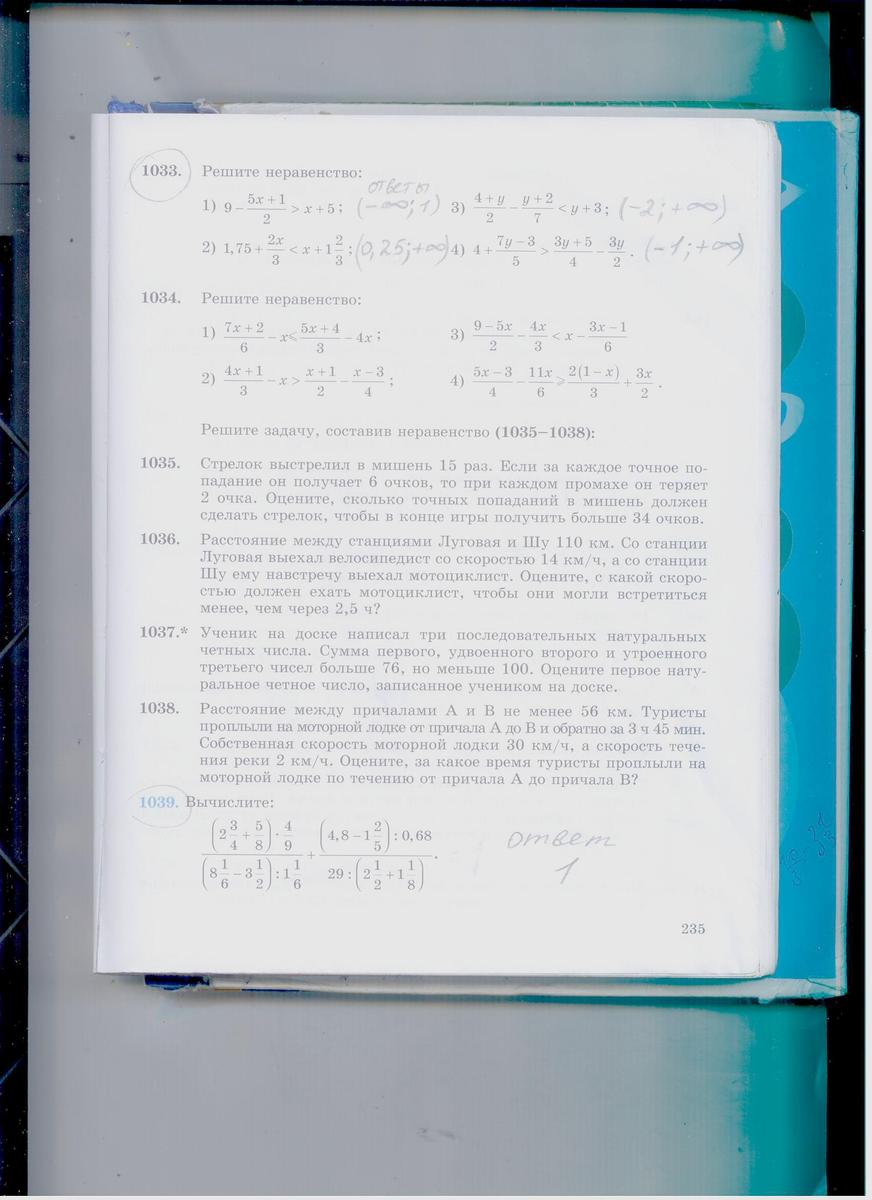 1033. Решите неравенство:
ответы
1) 9 − (5x + 1)/2 > x + 5; (−∞; 1) 3) (4 + y)/2 − (y + 2)/7 < y + 3; (−2; +∞)
2) 1,75 + 2x/3 < x + 1 2/3; (0,25; +∞) 4) 4 + (7y − 3)/5 > (3y + 5)/4 − 3y/2. (−1; +∞)
1034. Решите неравенство:
1) (7x + 2)/6 − x ⩽ (5x + 4)/3 − 4x; 3) (9 − 5x)/2 − 4x/3 < x − (3x − 1)/6
2) (4x + 1)/3 − x > (x + 1)/2 − (x − 3)/4; 4) (5x − 3)/4 − 11x/6 ⩾ 2(1 − x)/3 + 3x/2.
Решите задачу, составив неравенство (1035−1038):
1035. Стрелок выстрелил в мишень 15 раз. Если за каждое точное по-
падание он получает 6 очков, то при каждом промахе он теряет
2 очка. Оцените, сколько точных попаданий в мишень должен
сделать стрелок, чтобы в конце игры получить больше 34 очков.
1036. Расстояние между станциями Луговая и Шу 110 км. Со станции
Луговая выехал велосипедист со скоростью 14 км/ч, а со станции
Шу ему навстречу выехал мотоциклист. Оцените, с какой скоро-
стью должен ехать мотоциклист, чтобы они могли встретиться
менее, чем через 2,5 ч?
1037.* Ученик на доске написал три последовательных натуральных
четных числа. Сумма первого, удвоенного второго и утроенного
третьего чисел больше 76, но меньше 100. Оцените первое нату-
ральное четное число, записанное учеником на доске.
1038. Расстояние между причалами А и В не менее 56 км. Туристы
проплыли на моторной лодке от причала А до В и обратно за 3 ч 45 мин.
Собственная скорость моторной лодки 30 км/ч, а скорость тече-
ния реки 2 км/ч. Оцените, за какое время туристы проплыли на
моторной лодке по течению от причала А до причала В?
1039. Вычислите:
((2 3/4 + 5/8) · 4/9)/((8 1/6 − 3 1/2) : 1 1/6) + ((4,8 − 1 2/5) : 0,68)/(29 : (2 1/2 + 1 1/8)).
ответ
1
235